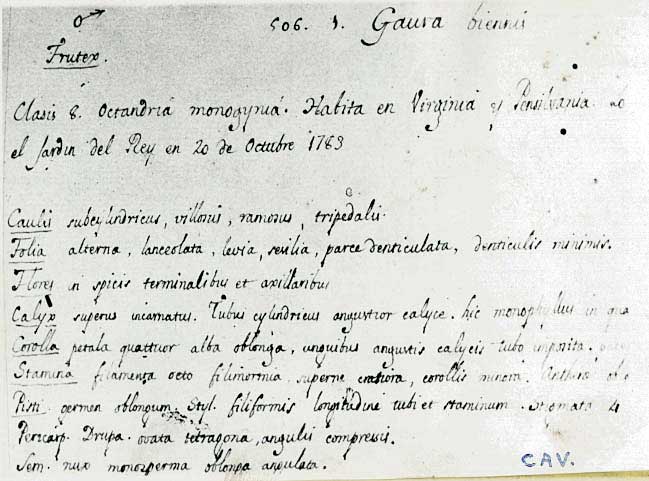 506. 1. Gaura biennis
Frutex.
Clasis 8. Octandria monogynia. Habita en Virginia y Pensilvania.
el Jardin del Rey en 20 de Octubre 1783
Caulis subcylindricus, villosus, ramosus, tripedalis.
Folia alterna, lanceolata, levia, sesilia, parce denticulata, denticulis minimis.
Flores in spicis terminalibus et axillaribus
Calyx superus incarnatus. Tubus cylindricus angustior calyce. hic monophyllus in qua
Corolla petala quattuor alba oblonga, unguibus angustis calycis tubo imposita.
Stamina filamenta octo filiformia, superne crasiora, corollis minora.
Pisti. germen oblongum. Styl. filiformis longitudine tubi et staminum. Stigmata 4
Pericarp. Drupa. ovata tetragona, angulis compressis.
Sem. nux monosperma oblonga angulata.
CAV.